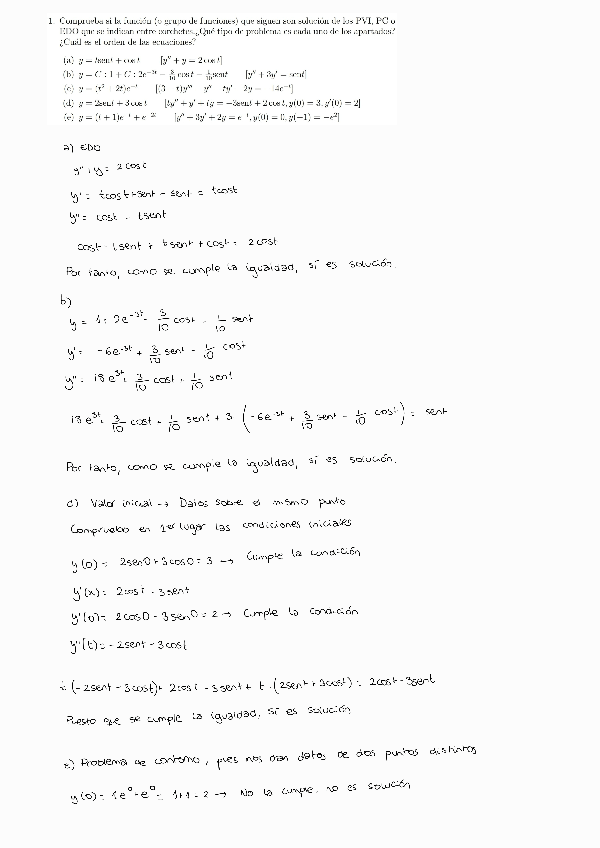 1. Comprueba si la función (o grupo de funciones) que siguen son solución de los PVI, PC o
EDO que se indican entre corchetes. ¿Qué tipo de problema es cada uno de los apartados?
¿Cuál es el orden de las ecuaciones?
(a) y = tsent + cos t [y'' + y = 2 cos t]
(b) y = C : 1 + C : 2e^{-3t} − 3/10 cos t − 1/10 sent [y'' + 3y' = sent]
(c) y = (t² + 2t)e^{-t}
(d) y = 2sent + 3 cos t [ty'' + y' + ty = −3sent + 2 cos t, y(0) = 3, y'(0) = 2]
(e) y = (t + 1)e^{-t} + e^{-2t} [y'' + 3y' + 2y = e^{-t}, y(0) = 0, y(−1) = −e²]
a) EDO
y'' + y = 2cos t
y' = tcost + sent - sent = tcost
y'' = cost - tsent
cost - tsent + tsent + cost = 2cost
Por tanto, como se cumple la igualdad, sí es solución.
b)
y = 1 + 2e^{-3t} - 3/10 cost - 1/10 sent
y' = -6e^{-3t} + 3/10 sent - 1/10 cost
y'' = 18e^{-3t} + 3/10 cost + 1/10 sent
18e^{-3t} + 3/10 cost + 1/10 sent + 3 (-6e^{-3t} + 3/10 sent - 1/10 cost) = sent
Por tanto, como se cumple la igualdad, sí es solución.
d) Valor inicial → Datos sobre el mismo punto
Compruebo en 1er lugar las condiciones iniciales
y(0) = 2sen0 + 3cos0 = 3 → Cumple la condición
y'(x) = 2cost - 3sent
y'(0) = 2cos0 - 3sen0 = 2 → Cumple la condición
y''(t) = -2sent - 3cost
t(-2sent - 3cost) + 2cost - 3sent + t·(2sent + 3cost) = 2cost - 3sent
Puesto que se cumple la igualdad, sí es solución
e) Problema de contorno, pues nos dan datos de dos puntos distintos
y(0) = 1e⁰ + e⁰ = 1+1 = 2 → No la cumple, no es solución